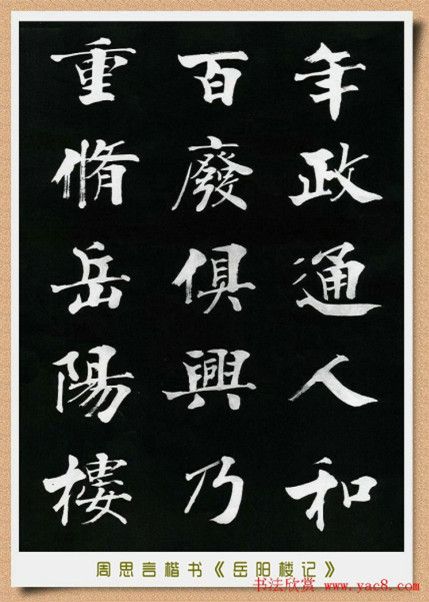 年政通人和
百廢俱興乃
重脩岳陽樓
周思言楷书《岳阳楼记》
书法欣赏 www.yac8.com